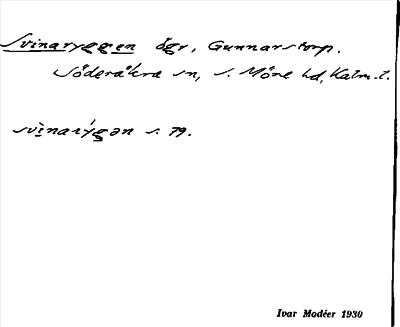 Svinaryggen ägr, Gunnarstorp.
Söderåkra sn, S. Möre hd, Kalm. l.
svìnarýgən s. 79.
Ivar Modéer 1930